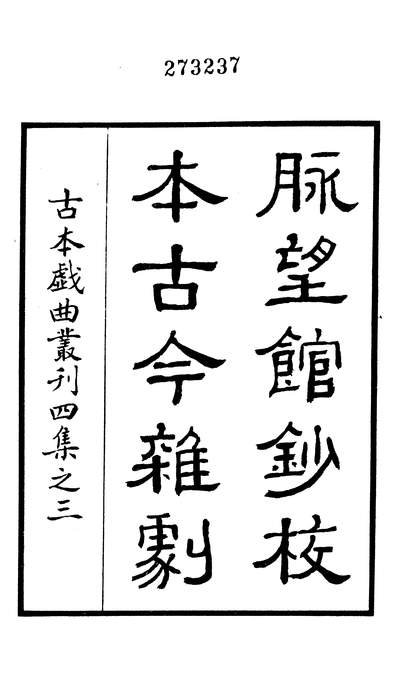 273237
脉望館鈔校
本古今雜劇
古本戲曲叢刊四集之三